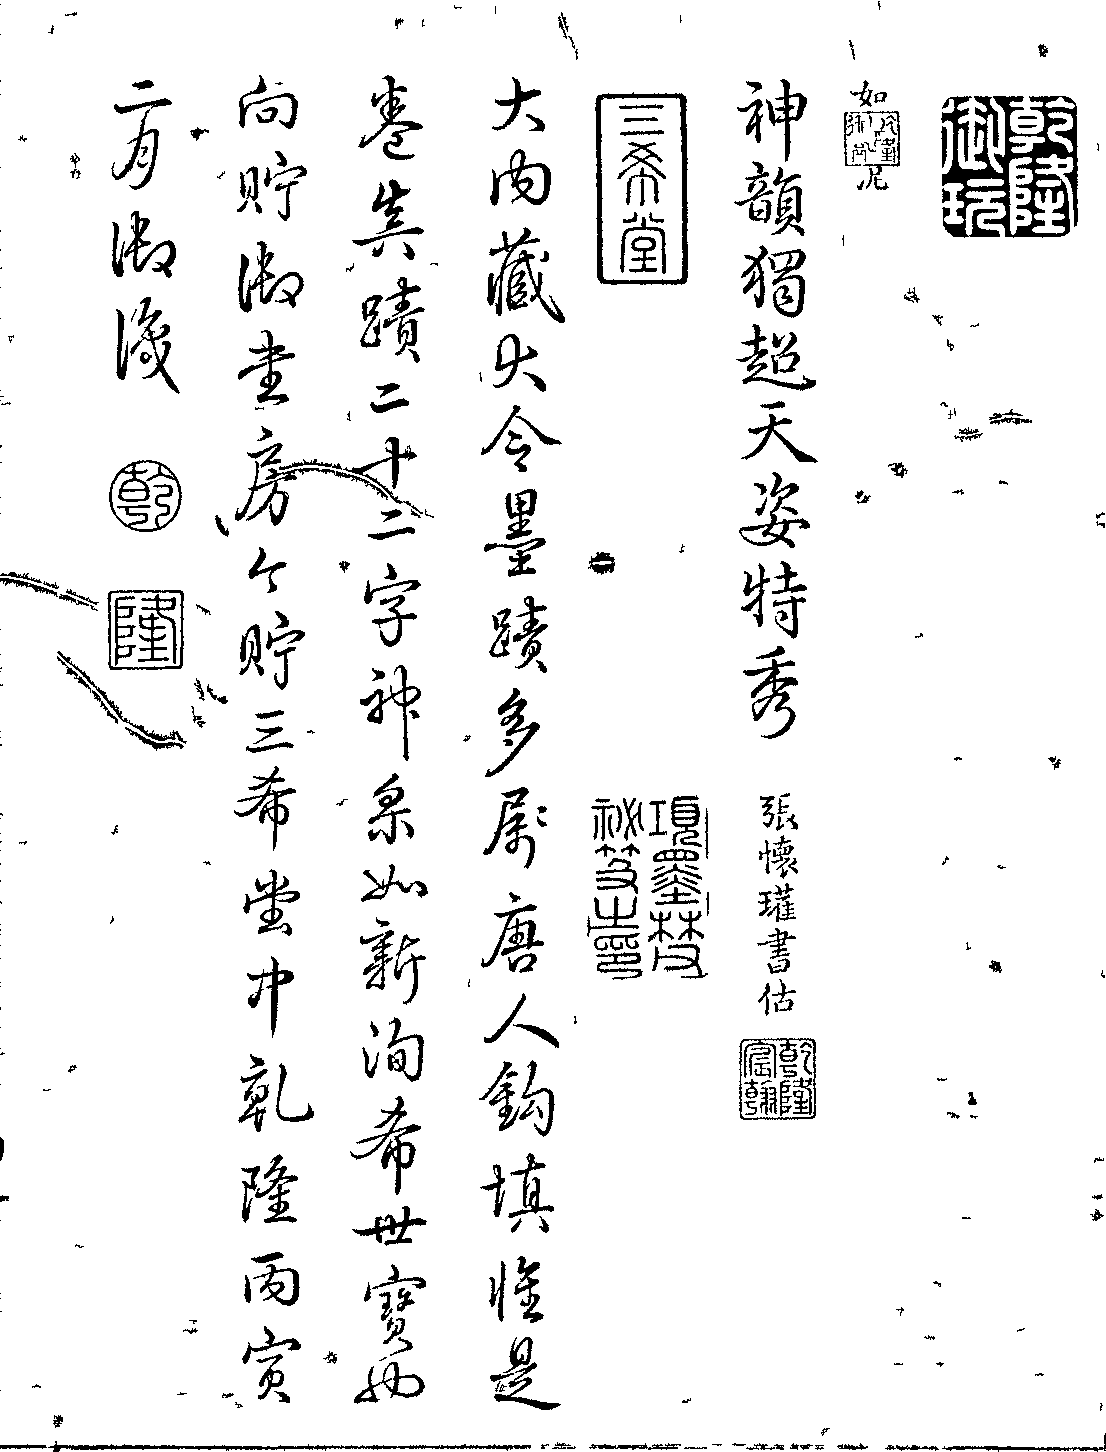 乾隆御玩
如
神韻獨超天姿特秀 張懷瓘書估
乾隆宸翰
三希堂
項墨林父祕笈之印
大内藏大令墨蹟多屬唐人鈎填惟是
卷真蹟二十二字神采如新洵希世寶也
向貯御書房今貯三希堂中乾隆丙寅
二月御識
乾
隆